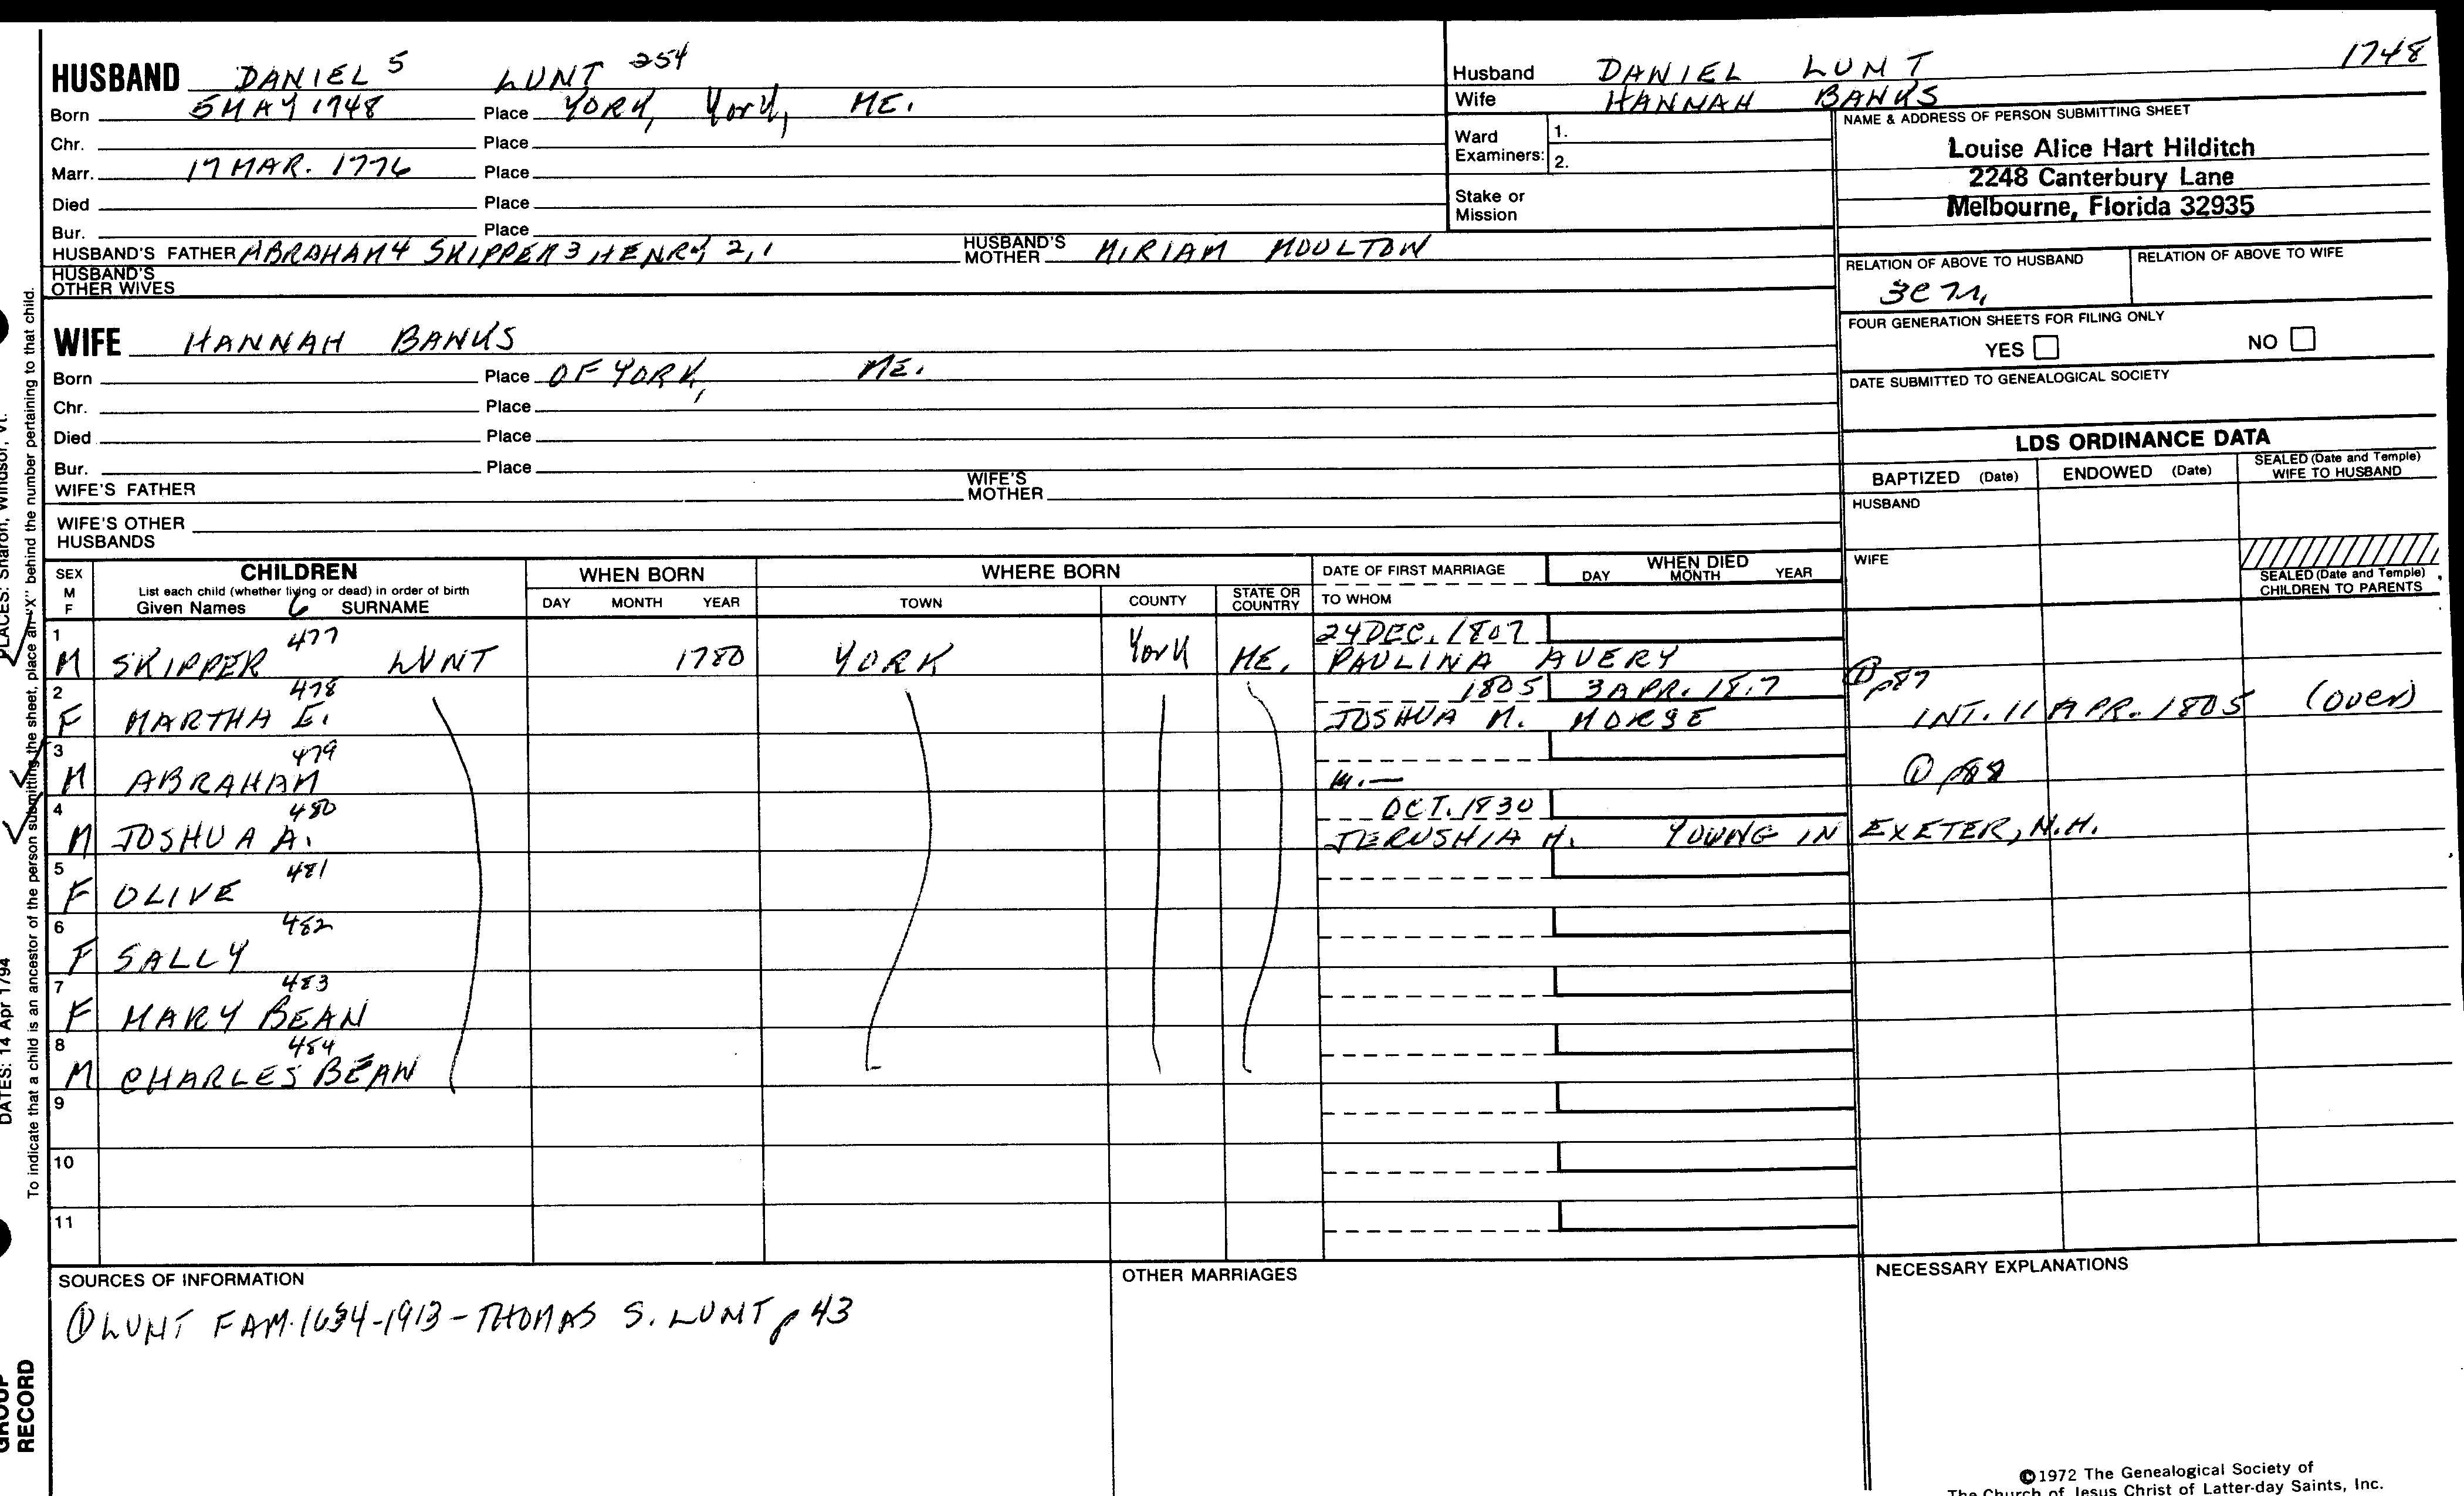 HUSBAND DANIEL 5 LUNT 254
Born 5 MAY 1748 Place YORK, York, ME.
Chr. Place
Marr. 17 MAR. 1776 Place
Died Place
Bur. Place
HUSBAND'S FATHER ABRAHAM 4 SKIPPER 3 HENRY 2,1 HUSBAND'S MOTHER MIRIAM MOULTON
HUSBAND'S OTHER WIVES
WIFE HANNAH BANKS
Born Place OF YORK, ME.
Chr. Place
Died Place
Bur. Place
WIFE'S FATHER WIFE'S MOTHER
WIFE'S OTHER HUSBANDS
Husband DANIEL LUNT 1748
Wife HANNAH BANKS
Ward Examiners: 1.
2.
Stake or Mission
NAME & ADDRESS OF PERSON SUBMITTING SHEET
Louise Alice Hart Hilditch
2248 Canterbury Lane
Melbourne, Florida 32935
RELATION OF ABOVE TO HUSBAND RELATION OF ABOVE TO WIFE
FOUR GENERATION SHEETS FOR FILING ONLY
YES NO
DATE SUBMITTED TO GENEALOGICAL SOCIETY
LDS ORDINANCE DATA
BAPTIZED (Date) ENDOWED (Date) SEALED (Date and Temple) WIFE TO HUSBAND
HUSBAND
WIFE
SEALED (Date and Temple) CHILDREN TO PARENTS
SEX M F CHILDREN WHEN BORN WHERE BORN DATE OF FIRST MARRIAGE WHEN DIED
List each child (whether living or dead) in order of birth
Given Names 6 SURNAME DAY MONTH YEAR TOWN COUNTY STATE OR COUNTRY TO WHOM DAY MONTH YEAR
1 477 24 DEC. 1807
M SKIPPER LUNT 1780 YORK York ME. PAULINA AVERY
2 478 1805 3 APR. 18.7 ① p87
F MARTHA E. JOSHUA M. MORSE INT. 11 APR. 1805 (over)
3 479
M ABRAHAM M.— ① p88
4 480 OCT. 1830
M JOSHUA A. JERUSHIA H. YOUNG IN EXETER, N.H.
5 481
F OLIVE
6 482
F SALLY
7 483
F MARY BEAN
8 484
M CHARLES BEAN
9
10
11
SOURCES OF INFORMATION OTHER MARRIAGES NECESSARY EXPLANATIONS
① LUNT FAM. 1634-1913 - THOMAS S. LUNT p 43
©1972 The Genealogical Society of
The Church of Jesus Christ of Latter-day Saints, Inc.
To indicate that a child is an ancestor of the person submitting the sheet, place an "X" behind the number pertaining to that child.
PLACES: Sharon, Windsor, Vt.
DATES: 14 Apr 1794
GROUP
RECORD